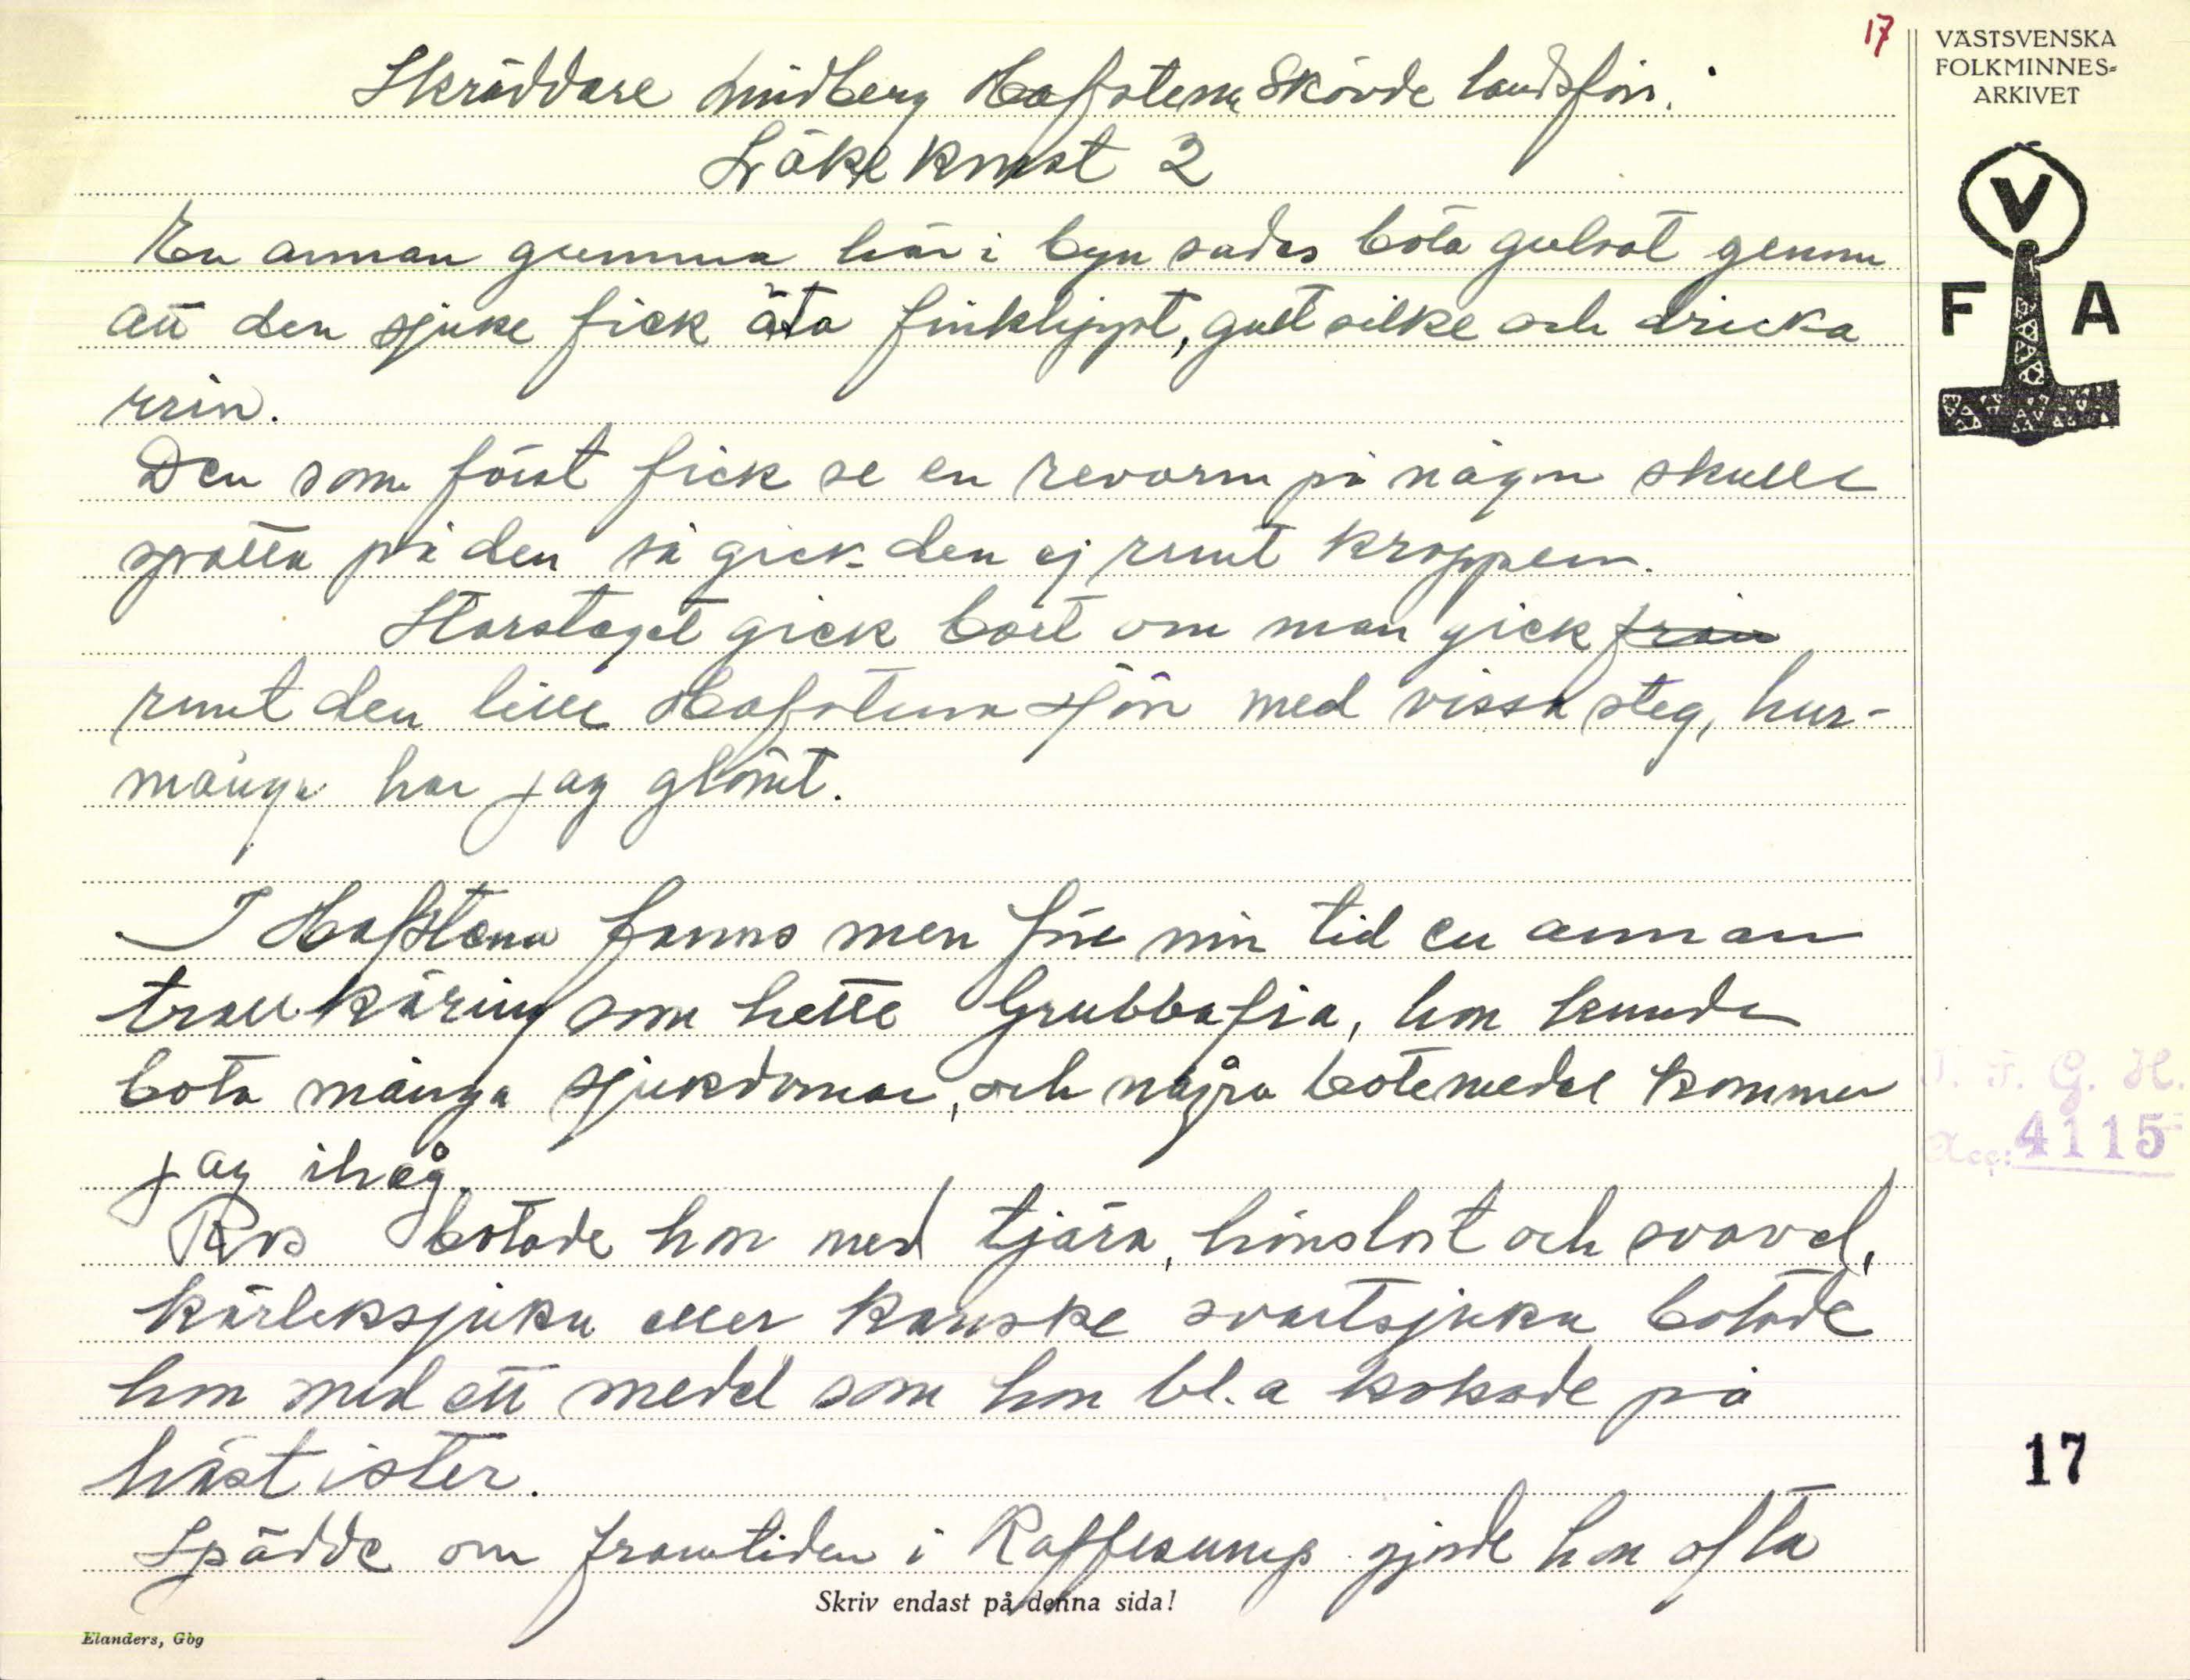 17
VÄSTSVENSKA
FOLKMINNES-
ARKIVET
V
F A
Skräddare Lindberg Hafstena Skövde landsförs.
Läkekunst 2
En annan gumma här i byn sades bota gulsot genom
att den sjuke fick äta finklippt, gult silke och dricka
urin.
Den som först fick se en revorm på någon skulle
spotta på den så gick den ej runt kroppen.
Starstaget gick bort om man gick från
runt den lille Hafstena sjön med vissa steg, hur-
många har jag glömt.
I Hafstena fanns men före min tid en annan
trollkäring som hette Grubbafia, hon kunde
bota många sjukdomar, och några botemedel kommer
jag ihåg.
Ros botade hon med tjära, hönslort och svavel,
kärleksjuka eller kanske svartsjuka botade
hon med ett medel som hon bl.a kokade på
hästister.
Spådde om framtiden i Kaffesump gjorde hon ofta
I. F. G. H.
Acc: 4115
17
Skriv endast på denna sida!
Elanders, Gbg